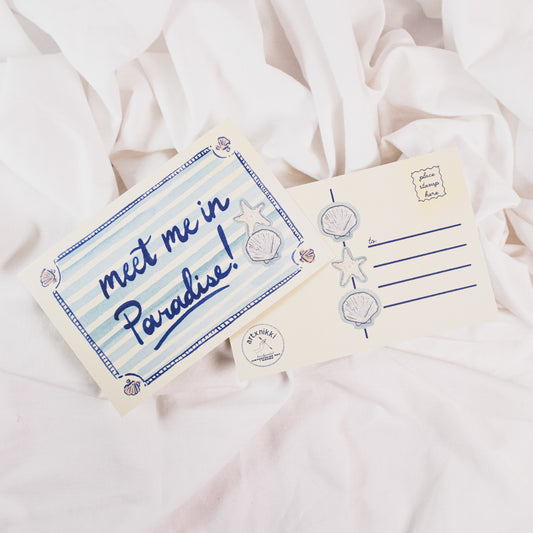 meet me in
Paradise!
place
stamp
here
to:
artxnikki